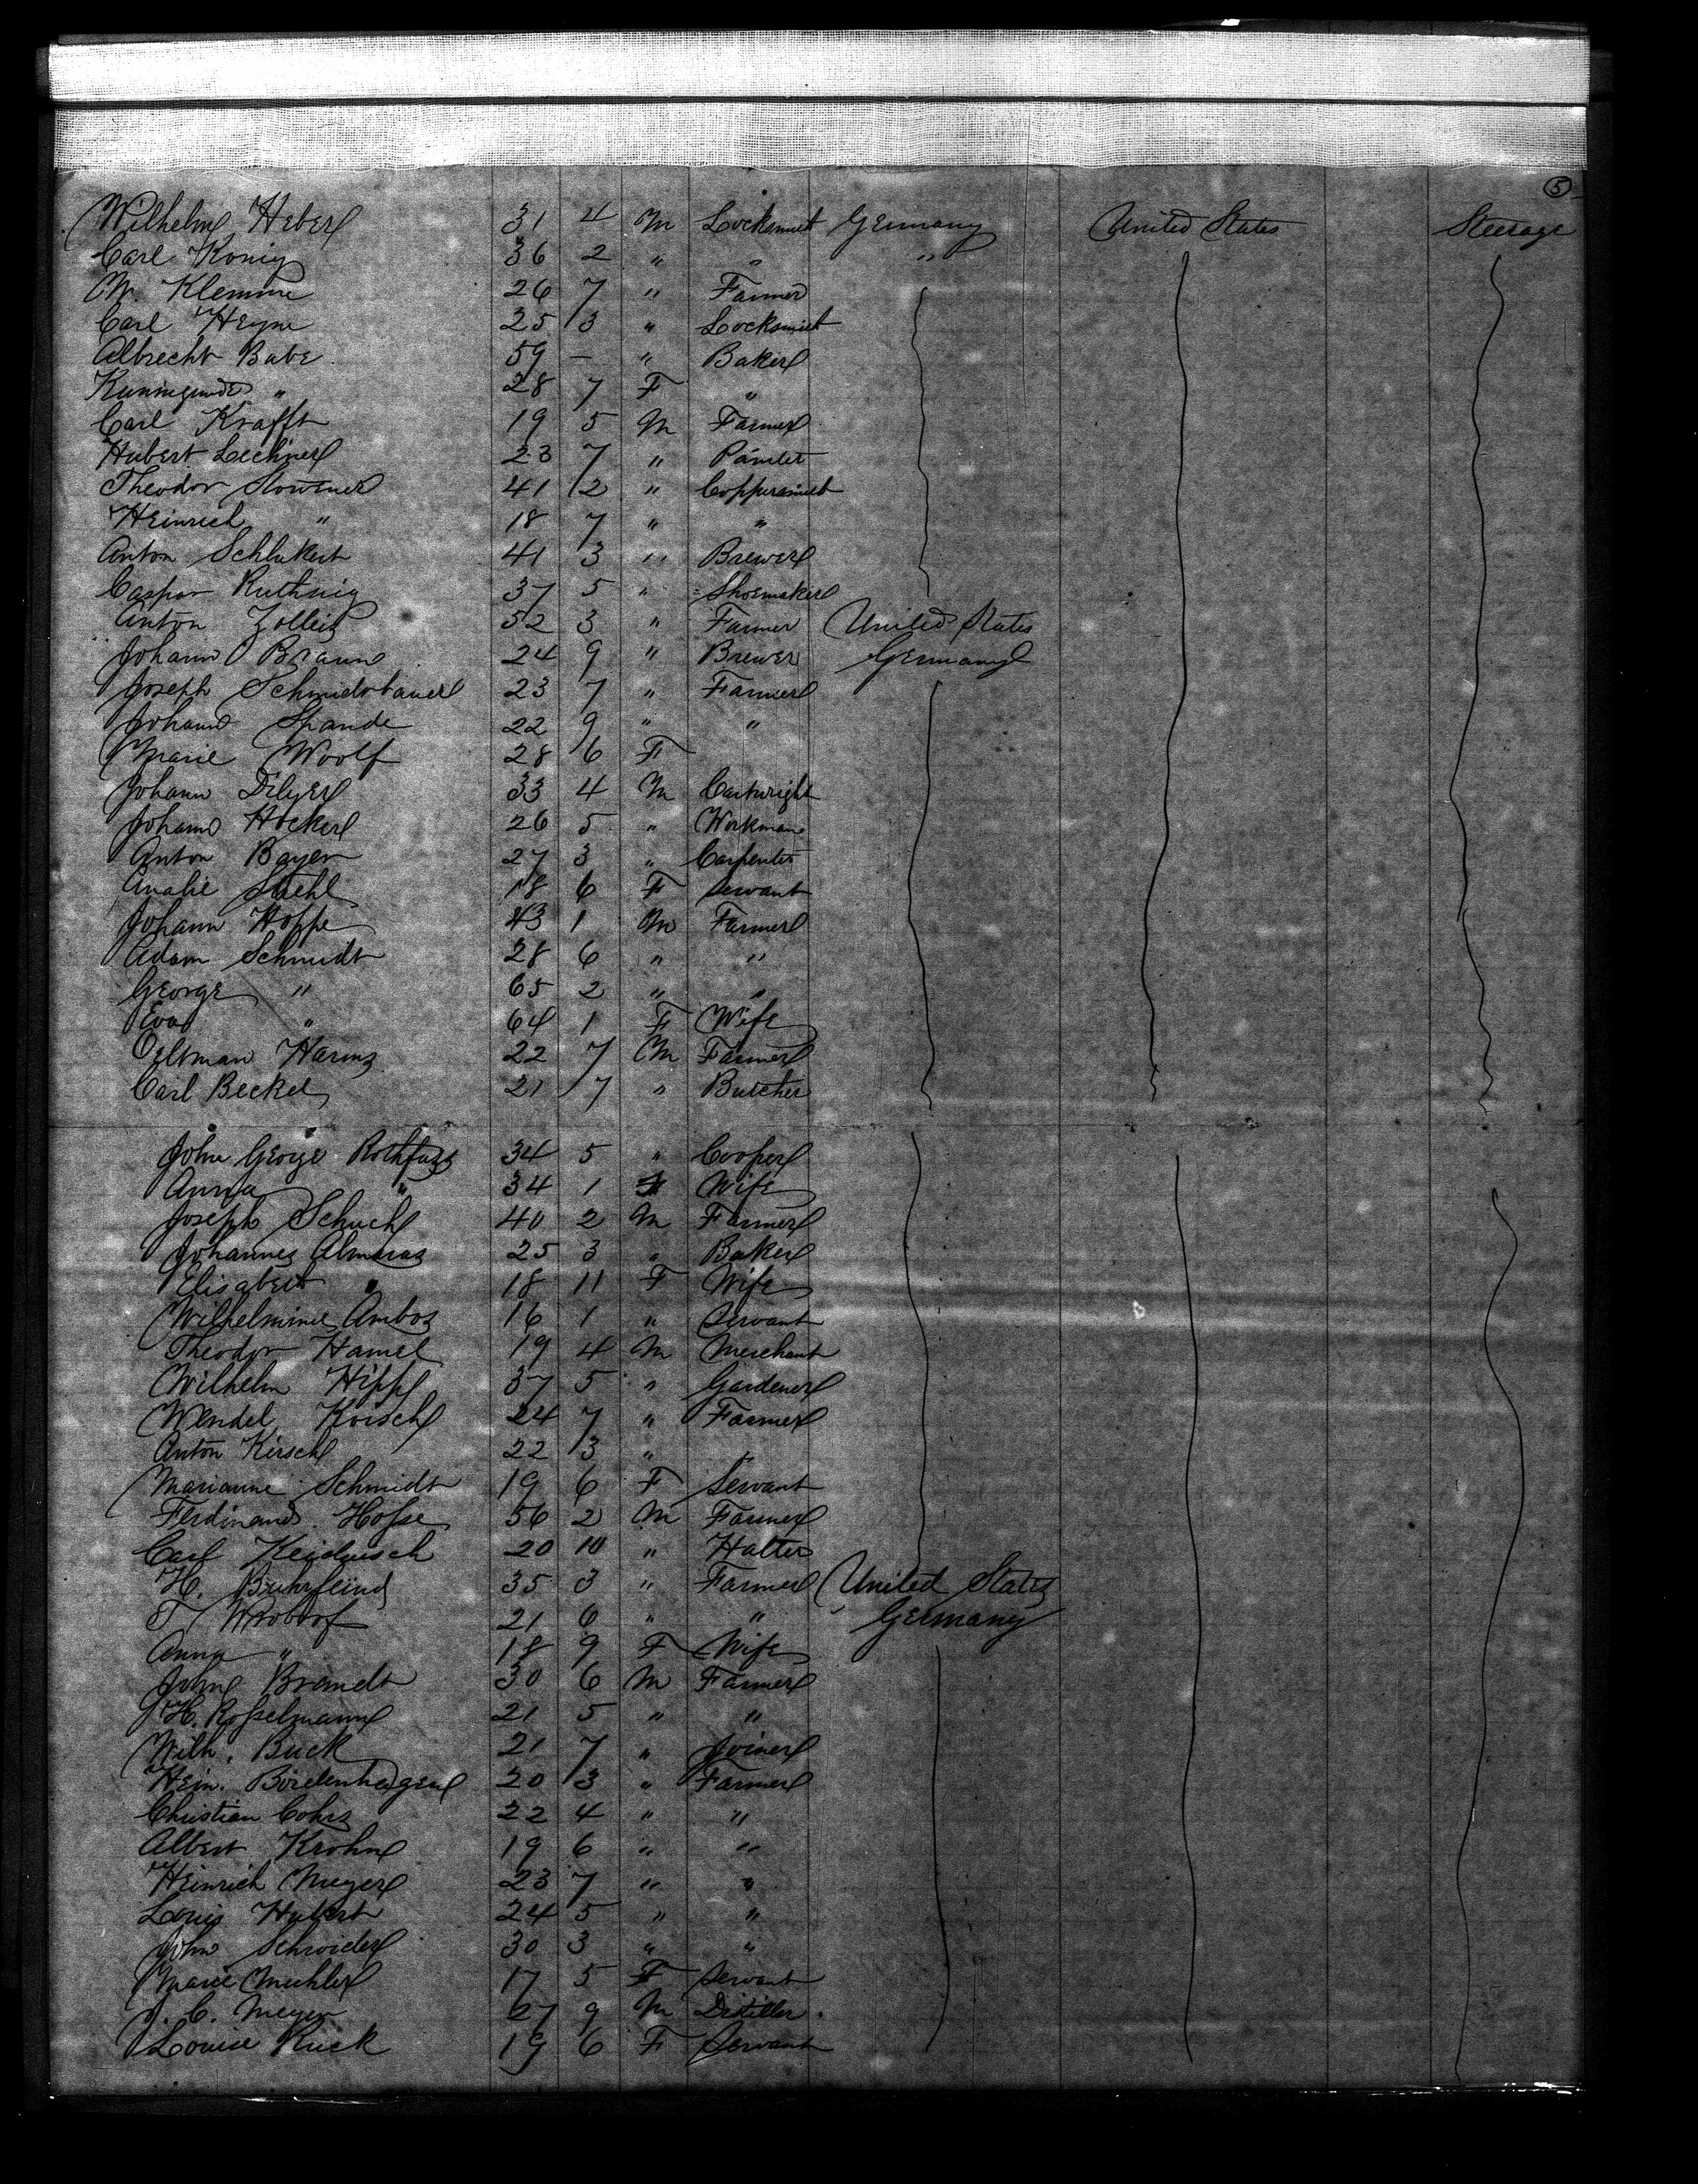 5
Wilhelm Heber 31 4 M Locksmith Germany United States Steerage
Carl König 36 2 " " "
M. Klemme 26 7 " Farmer
Carl Heyne 25 3 " Locksmith
Albrecht Babe 59 - " Baker
Kunnigunde " 28 7 F "
Carl Krafft 19 5 M Farmer
Hubert Lechner 23 7 "
Theodor 41 2 " Coppersmith
Heinrich " 18 7 " "
Anton Schlukert 41 3 " Brewer
Caspar Ruthnig 37 5 " Shoemaker
Anton Zolleis 52 3 " Farmer United States
Johann Braun 24 9 " Brewer Germany
Joseph Schmidtbauer 23 7 " Farmer
Johann Spande 22 9 " "
Marie Woolf 28 6 F
Johann Dilger 33 4 M Cartwright
Johann Höcker 26 5 " Workman
Anton Bayer 27 3 " Carpenter
Stiehl 18 6 F Servant
Johann Hoppe 43 1 M Farmer
Adam Schmidt 28 6 " "
George " 65 2 " "
Eva " 64 1 F Wife
Oltman Harms 22 7 M Farmer
Carl Beckel 21 7 " Butcher
John George Rothfuss 34 5 " Cooper
Anna " 34 1 F Wife
Joseph Schuch 40 2 M Farmer
Johannes Almaras 25 3 " Baker
Elisabeth " 18 11 F Wife
Wilhelmine Ambos 16 1 " Servant
Theodor Hamel 19 4 M Merchant
Wilhelm Hipp 37 5 " Gardener
Wendel 24 7 " Farmer
Anton Kirsch 22 3 " "
Marianne Schmidt 19 6 F Servant
Ferdinand Hosse 56 2 M Farmer
Carl 20 10 " Hatter
H. Buhrfeind 35 3 " Farmer United States
T 21 6 " " Germany
Anna " 18 9 F Wife
John Brandt 30 6 M Farmer
H. Rosselmann 21 5 " "
Wilh. Buck 21 7 " Joiner
Hein. Bordenhagen 20 3 " Farmer
Christian Cohrs 22 4 " "
Albert Krohn 19 6 " "
Heinrich Meyer 23 7 " "
Louis Hubert 24 5 " "
John Schroider 30 3 " "
Marie Muehler 17 5 F Servant
J. C. Meyer 27 9 M Distiller
Louise Rück 19 6 F Servant